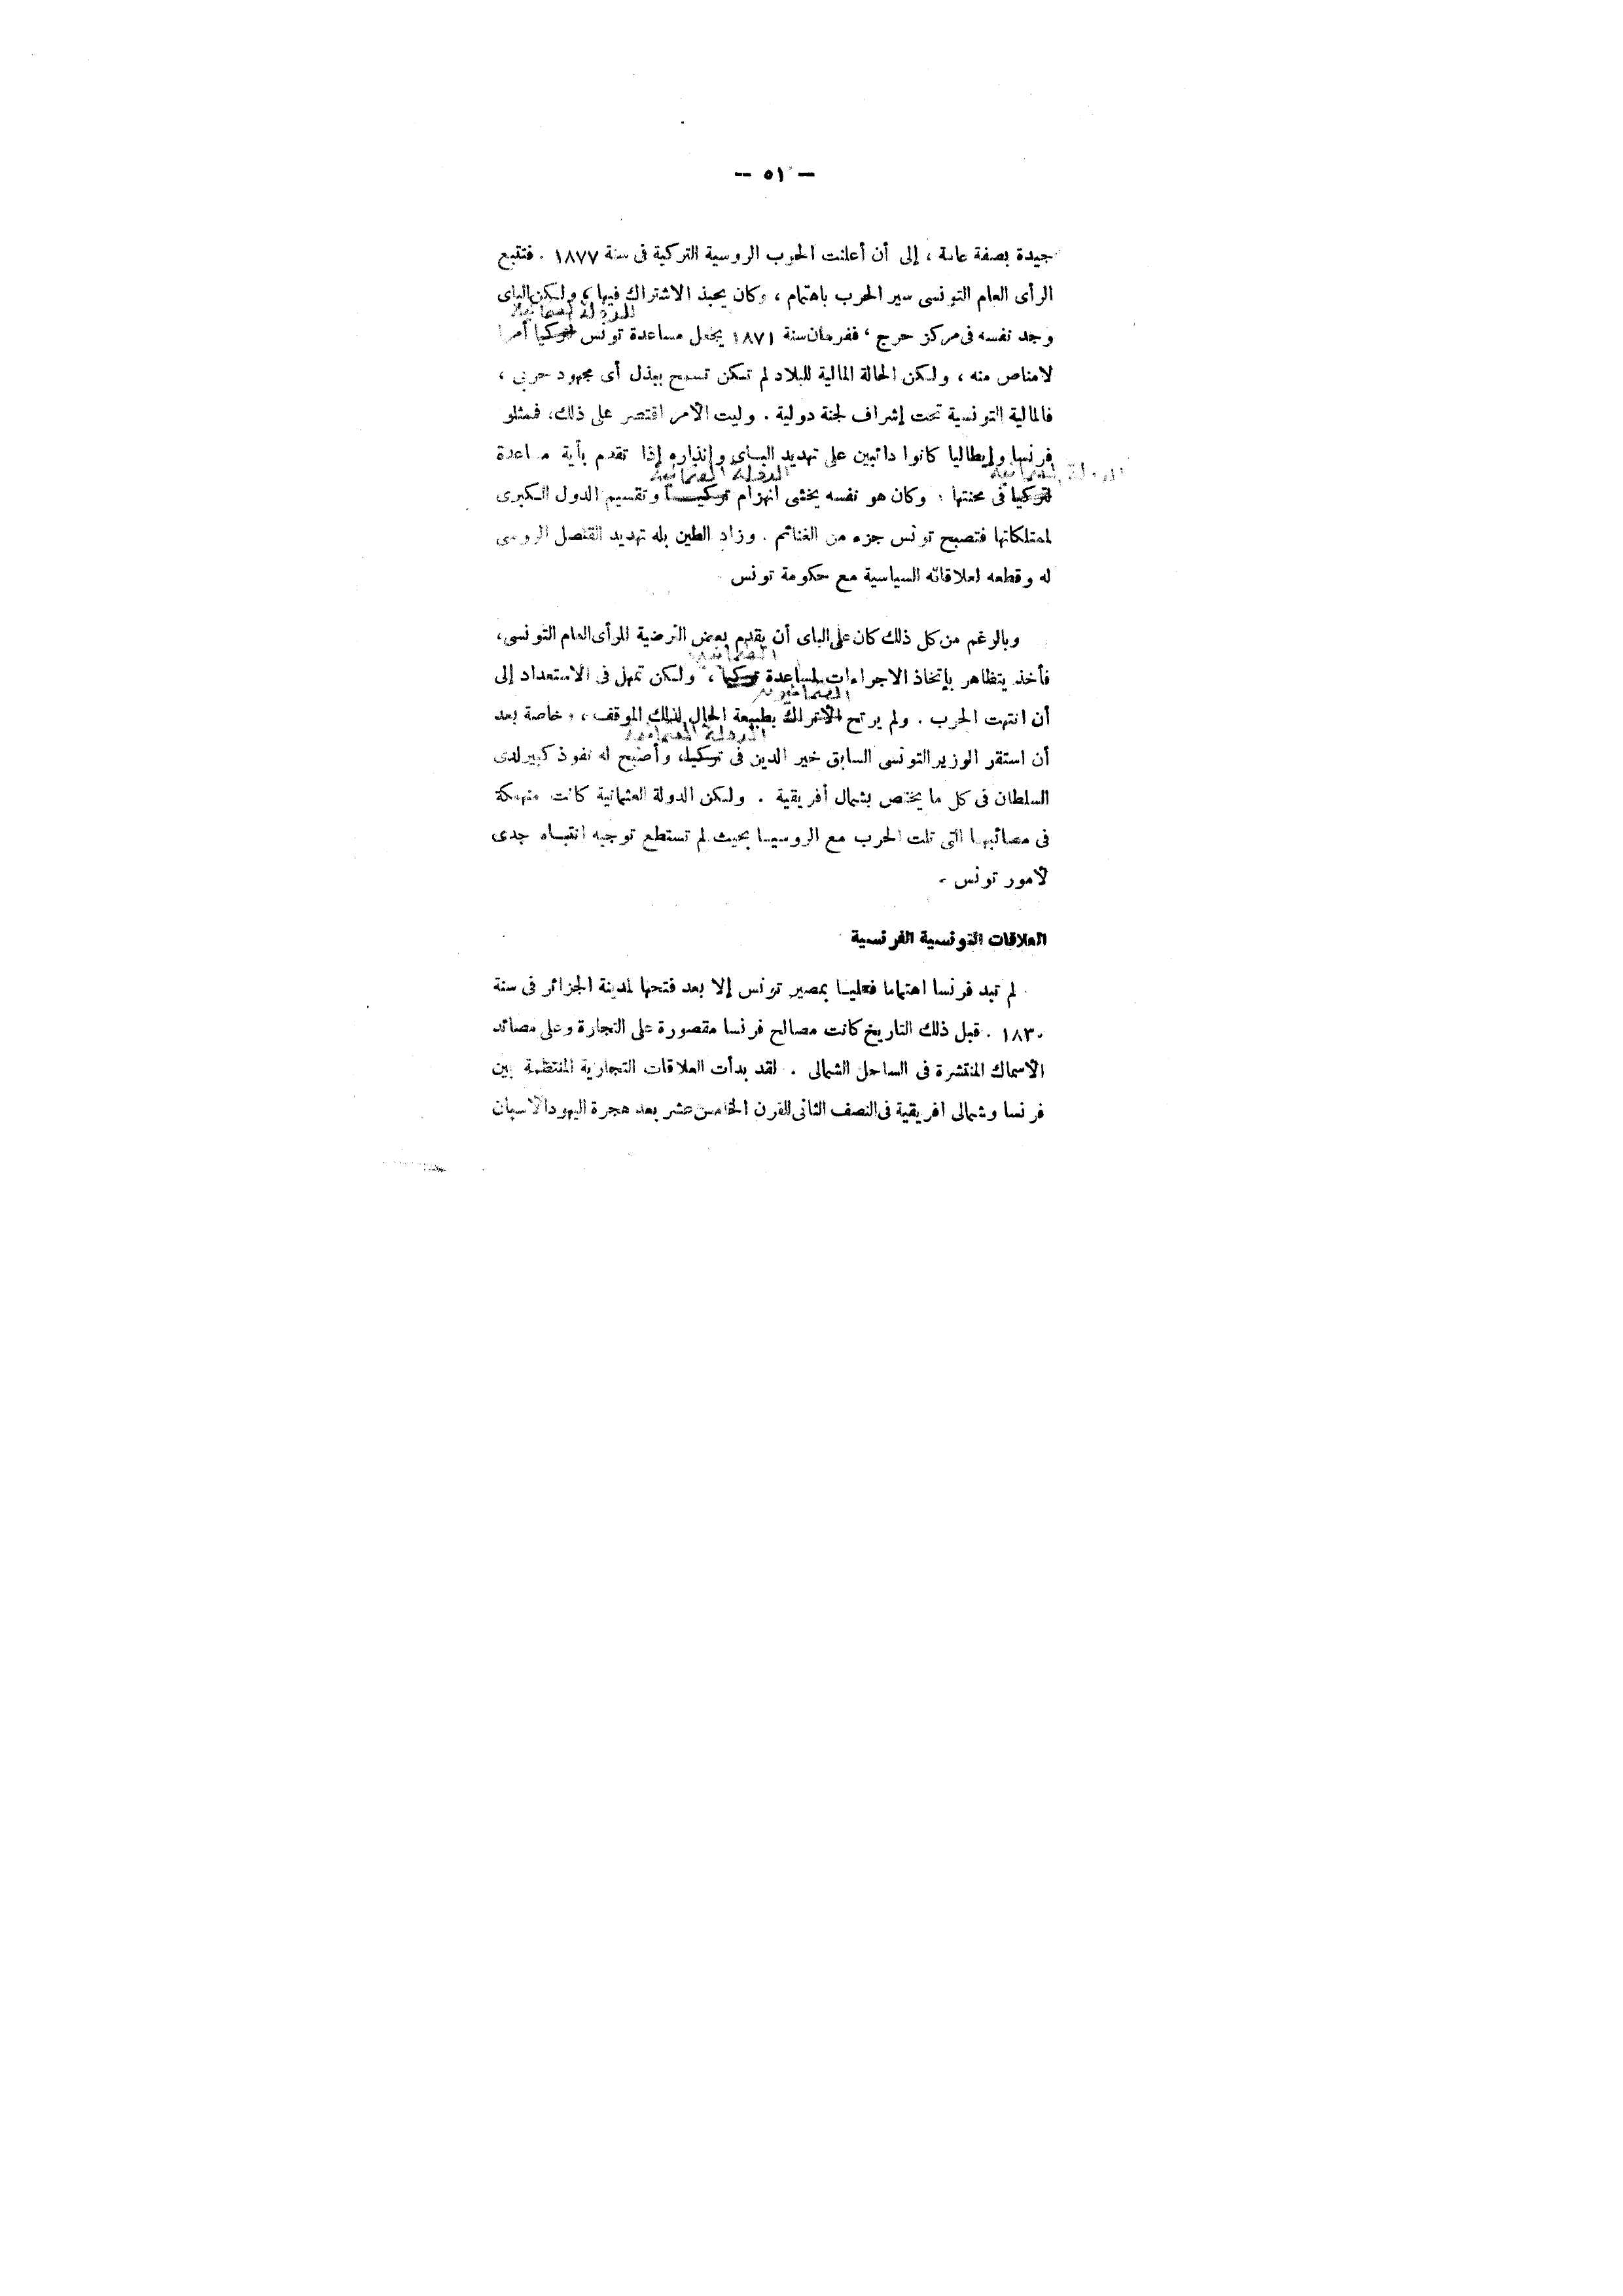 — ٥١ —
جيدة بصفة عامة ، إلى أن أعلنت الحرب الروسية التركية فى سنة ١٨٧٧ . فتتبع
الرأى العام التونسى سير الحرب باهتمام ، وكان يحبذ الاشتراك فيها ، ولكن الباى
للدولة العثمانية
وجد نفسه فى مركز حرج ، ففرمان سنة ١٨٧١ يجعل مساعدة تونس لتركيا أمرا
لامناص منه ، ولكن الحالة المالية للبلاد لم تكن تسمح ببذل أى مجهود حربى ،
فالمالية التونسية تحت إشراف لجنة دولية . وليت الأمر اقتصر على ذلك، فممثلو
فرنسا وإيطاليا كانوا دائبين على تهديد الباى وإنذاره إذا تقدم بأية مساعدة
للدولة العثمانية الدولة العثمانية
لتركيا فى محنتها ، وكان هو نفسه يخشى انهزام تركيا وتقسيم الدول الكبرى
لممتلكاتها فتصبح تونس جزء من الغنائم . وزاد الطين بله تهديد القنصل الروسى
له وقطعه لعلاقاته السياسية مع حكومة تونس
وبالرغم من كل ذلك كان على الباى أن يقدم بعض الترضية للرأى العام التونسى،
العثمانيين
فأخذ يتظاهر بإتخاذ الاجراءات لمساعدة تركيا ، ولكن تمهل فى الاستعداد إلى
العثمانيون
أن انتهت الحرب . ولم يرتح الأتراك بطبيعة الحال لذلك الموقف ، خاصة بعد
الدولة العثمانية
أن استقر الوزير التونسى السابق خير الدين فى تركيا، وأصبح له نفوذ كبير لدى
السلطان فى كل ما يختص بشمال أفريقية . ولكن الدولة العثمانية كانت منهمكة
فى مصائبها التى تلت الحرب مع الروسيا بحيث لم تستطع توجيه انتباه جدى
لأمور تونس .
العلاقات التونسية الفرنسية
لم تبد فرنسا اهتماما فعليا بمصير تونس إلا بعد فتحها لمدينة الجزائر فى سنة
١٨٣٠ . قبل ذلك التاريخ كانت مصالح فرنسا مقصورة على التجارة وعلى مصائد
الأسماك المنتشرة فى الساحل الشمالى . لقد بدأت العلاقات التجارية المنتظمة بين
فرنسا وشمالى افريقية فى النصف الثانى للقرن الخامس عشر بعد هجرة اليهود الأسبان